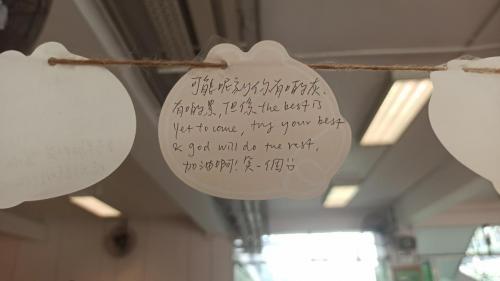 可能呢刻你有啲灰,
有啲累,但係 the best is
yet to come, try your best
& god will do the rest.
加油啊!笑一個